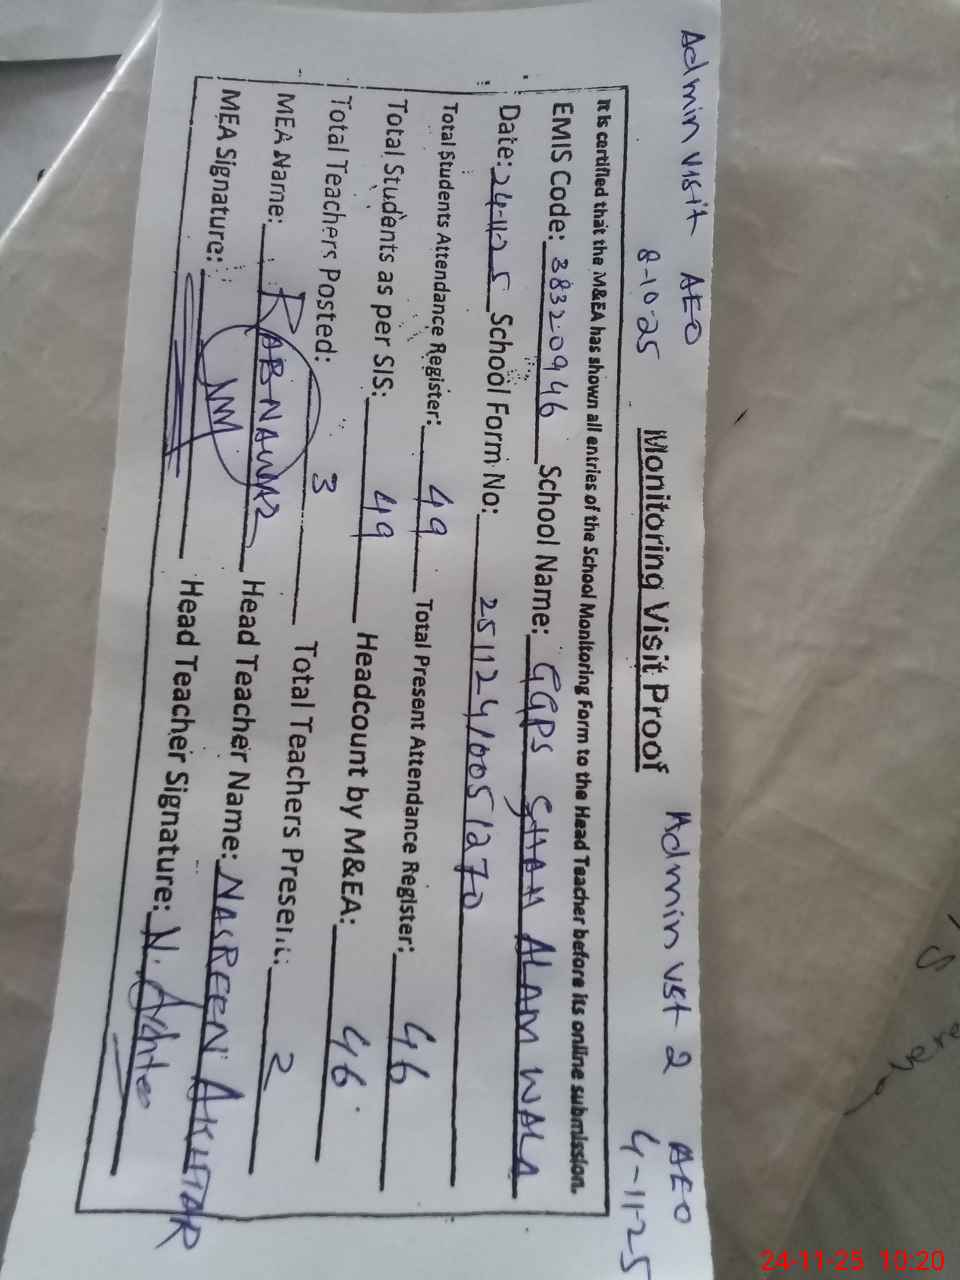 Admin visit AEO Admin vst 2 AEO
8-10-25 4-11-25
Monitoring Visit Proof
It is certified that the M&EA has shown all entries of the School Monitoring Form to the Head Teacher before its online submission.
EMIS Code: 38320946 School Name: GGPS SHAH ALAM WALA
Date: 24-11-25 School Form No: 25112410051270
Total Students Attendance Register: 49 Total Present Attendance Register: 46
Total Students as per SIS: 49 Headcount by M&EA: 46
Total Teachers Posted: 3 Total Teachers Present: 2
MEA Name: RAB NAWAZ Head Teacher Name: NASREEN AKHTAR
MEA Signature: Head Teacher Signature: N. Akhter
24-11-25 10:20